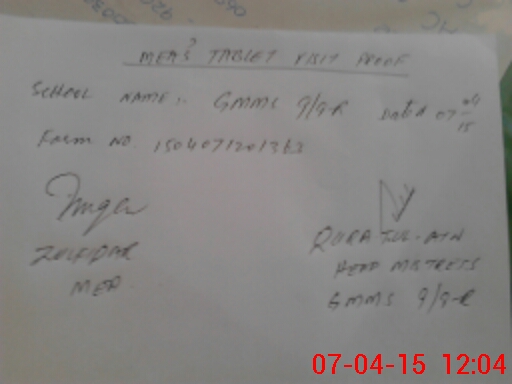 MEA'S TABLET VISIT PROOF
SCHOOL NAME:- GMMS 9/9-R Dated 07 04 15
Form NO. 1504071201363
ZULFIQAR
MEA
QURA TUL-AIN
HEAD MISTRETS
GMMS 9/9-R
07-04-15 12:04